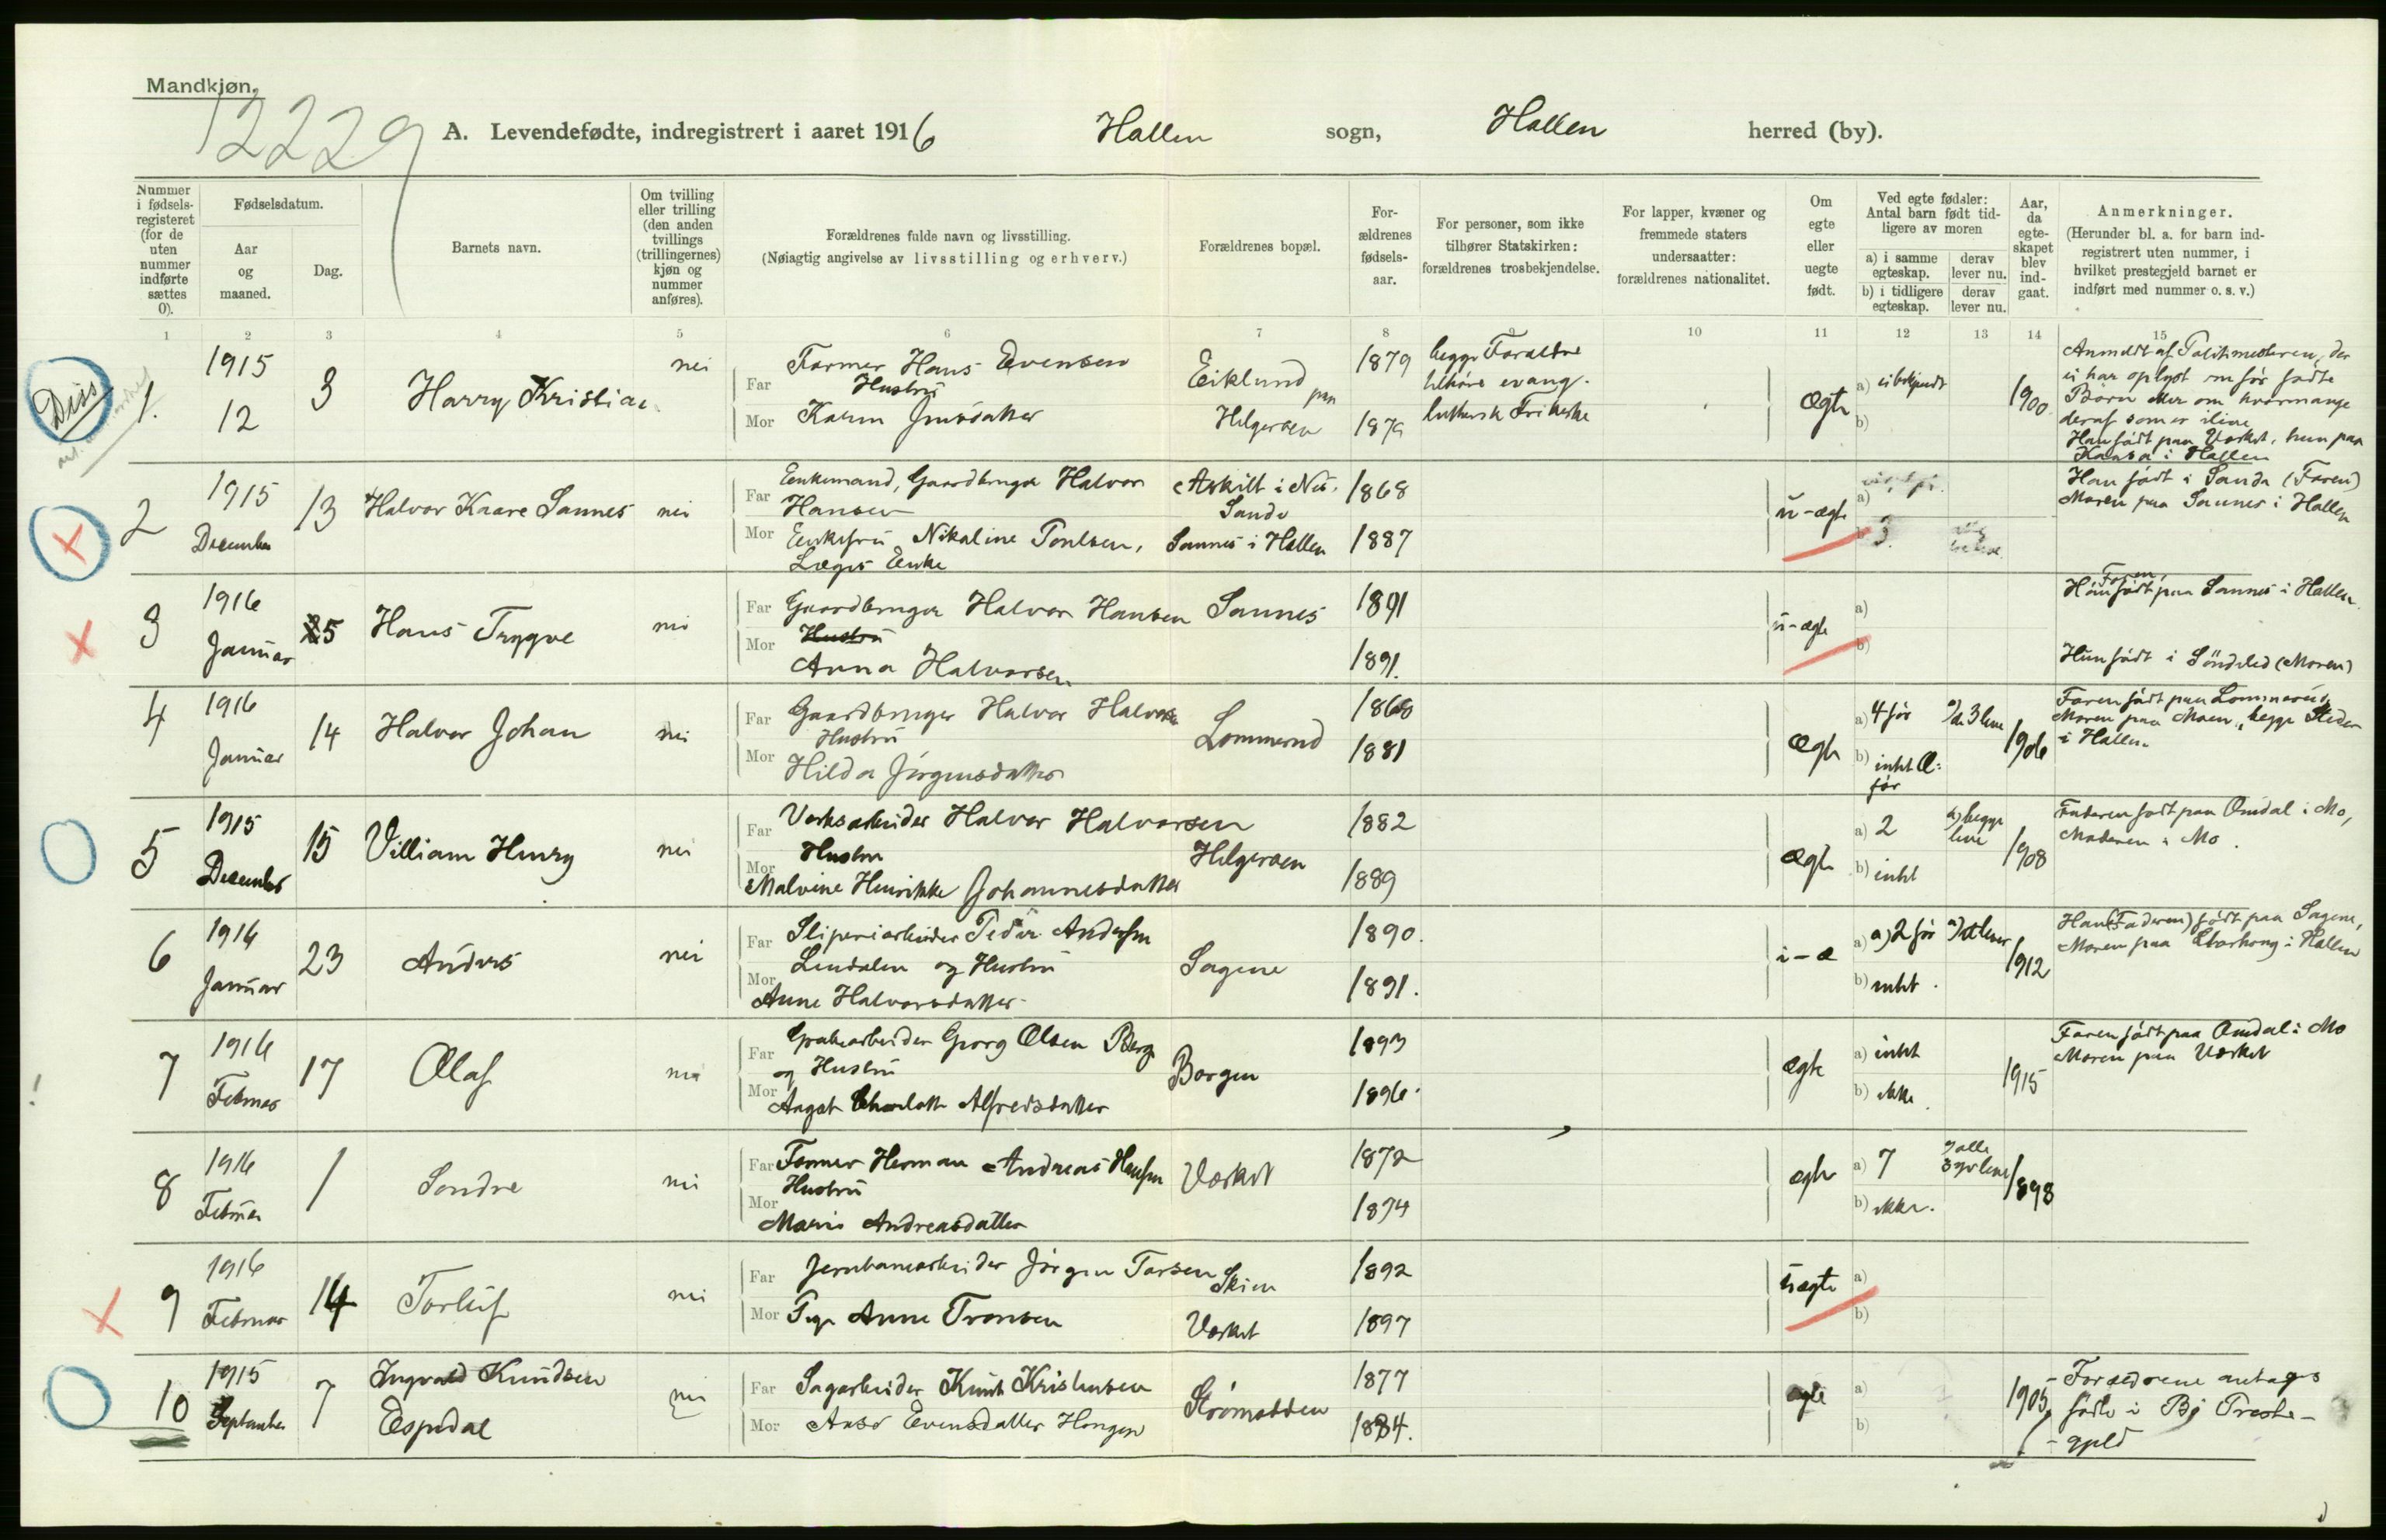 Mandkjøn.
12229
A. Levendefødte, indregistrert i aaret 1916 Hallen sogn, Hallen herred (by).
Nummer i fødsels-registeret (for de uten nummer indførte sættes 0).
Fødselsdatum.
Aar og maaned.
Dag.
Barnets navn.
Om tvilling eller trilling (den anden tvillings (trillingernes) kjøn og nummer anføres).
Forældrenes fulde navn og livsstilling.
(Nøiagtig angivelse av livsstilling og erhverv.)
Forældrenes bopæl.
For-ældrenes fødsels-aar.
For personer, som ikke tilhører Statskirken: forældrenes trosbekjendelse.
For lapper, kvæner og fremmede staters undersaatter: forældrenes nationalitet.
Om egte eller uegte født.
Ved egte fødsler: Antal barn født tid-ligere av moren
a) i samme egteskap. derav lever nu.
b) i tidligere egteskap. derav lever nu.
Aar, da egte-skapet blev ind-gaat.
Anmerkninger.
(Herunder bl. a. for barn ind-registrert uten nummer, i hvilket prestegjeld barnet er indført med nummer o. s. v.)
1 2 3 4 5 6 7 8 9 10 11 12 13 14 15
Diss
1. 1915 12 3 Harry Kristian nei
Far Farmer Hans Evensen
Hustru
Mor Karen Jensdatter
Eiklund paa Helgeroen
1879
begge Forældre
tilhøre evang.
luthersk Frikirke
ægte a) b) 1900
ei har oplyst om før fødte
Børn eller om hvormange
deraf som er ilive
Han født paa Værket, hun paa
i Hallen
2 1915 December 13 Halvor Kaare Sannes nei
Far Enkemand, Gaardbruger Halvor
Hansen
Mor Nikaline Poulsen,
Lægds Enke
Sannes i Hallen
1868
1887
u-ægte a) b) 3
Han født i Sande (Faren)
Moren paa Sannes i Hallen
3 1916 Januar 25 Hans Trygve nei
Far Gaardbruger Halvor Hansen
Hustru
Mor Anna Halvorsen
Sannes
1891
1891.
u-ægte a) b)
Faren
Han født paa Sannes i Hallen.
Hun født i Søndeled (Moren)
4 1916 Januar 14 Halvor Johan nei
Far Gaardbruger Halvor Halvorsen
Hustru
Mor Hilda Jørgensdatter
Lommerud
1868
1881
ægte a) 4 før 3 leve
b) intet
før
1906
Faren født paa Lommerud,
Moren paa Moen, begge Steder
i Hallen
5 1915 December 15 Villiam Henry nei
Far Verksarbeider Halvor Halvorsen
Hustru
Mor Malvine Henrikke Johannesdatter
Helgeroen
1882
1889
ægte a) 2 a) begge leve
b) intet
1908
Faderen født paa Omdal i Mo,
Moderen i Mo.
6 1916 Januar 23 Anders nei
Far Sliperiarbeider Peder Andersen
Lindalen og Hustru
Mor Anne Halvorsdatter
Sagene
1890.
1891.
a) 2 før
b) intet.
1912
Han (Faderen) født paa Sagene,
Moren paa i Hallen
7 1916 Februar 17 Olaf nei
Far Georg Olsen Berge
og Hustru
Mor Aagot Charlotte Alfredsdatter
Borgen
1893
1896.
ægte a) intet
b) ikke
1915
Faren født paa Omdal i Mo
Moren paa Værket
8 1916 Februar 1 Sondre nei
Far Former Herman Andreas Hansen
Hustru
Mor Marie Andreasdatter
Værket
1872
1874
ægte a) 7 alle
b) ikke.
1898
9 1916 Februar 14 Torleif nei
Far Jernbanearbeider Jørgen Torsen
Mor Pige Anne Tronsen
Skien
Værket
1892
1897
uægte a) b)
10 1915 September 7 Ingvald Knudsen
Espedal nei
Far Sagarbeider Knut Kristensen
Mor Aase Evensdatter Haugen
Strømodden
1877
1884.
ægte a) b)
1905
- Forældrene antages
fødte i Bø Preste-
- gjeld